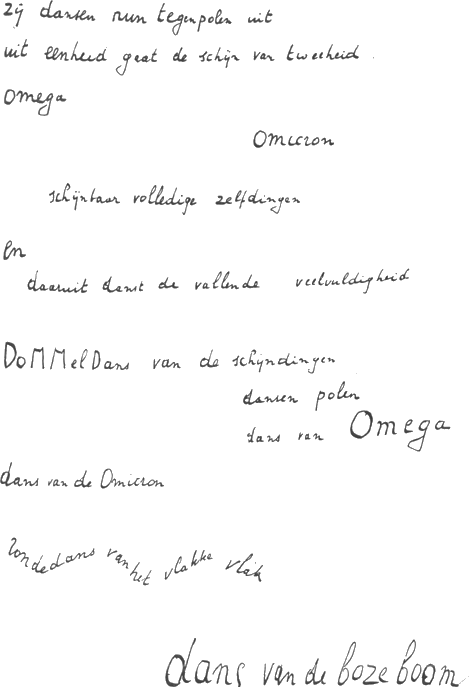 zij dansen hun tegenpolen uit
uit eenheid gaat de schijn van tweeheid.
Omega
Omicron
schijnbaar volledige zelfdingen
en
daaruit danst de vallende veelvuldigheid
DoMMelDans van de schijndingen
dansen polen
dans van Omega
dans van de Omicron
rondedans van het vlakke vlak
dans van de boze boom